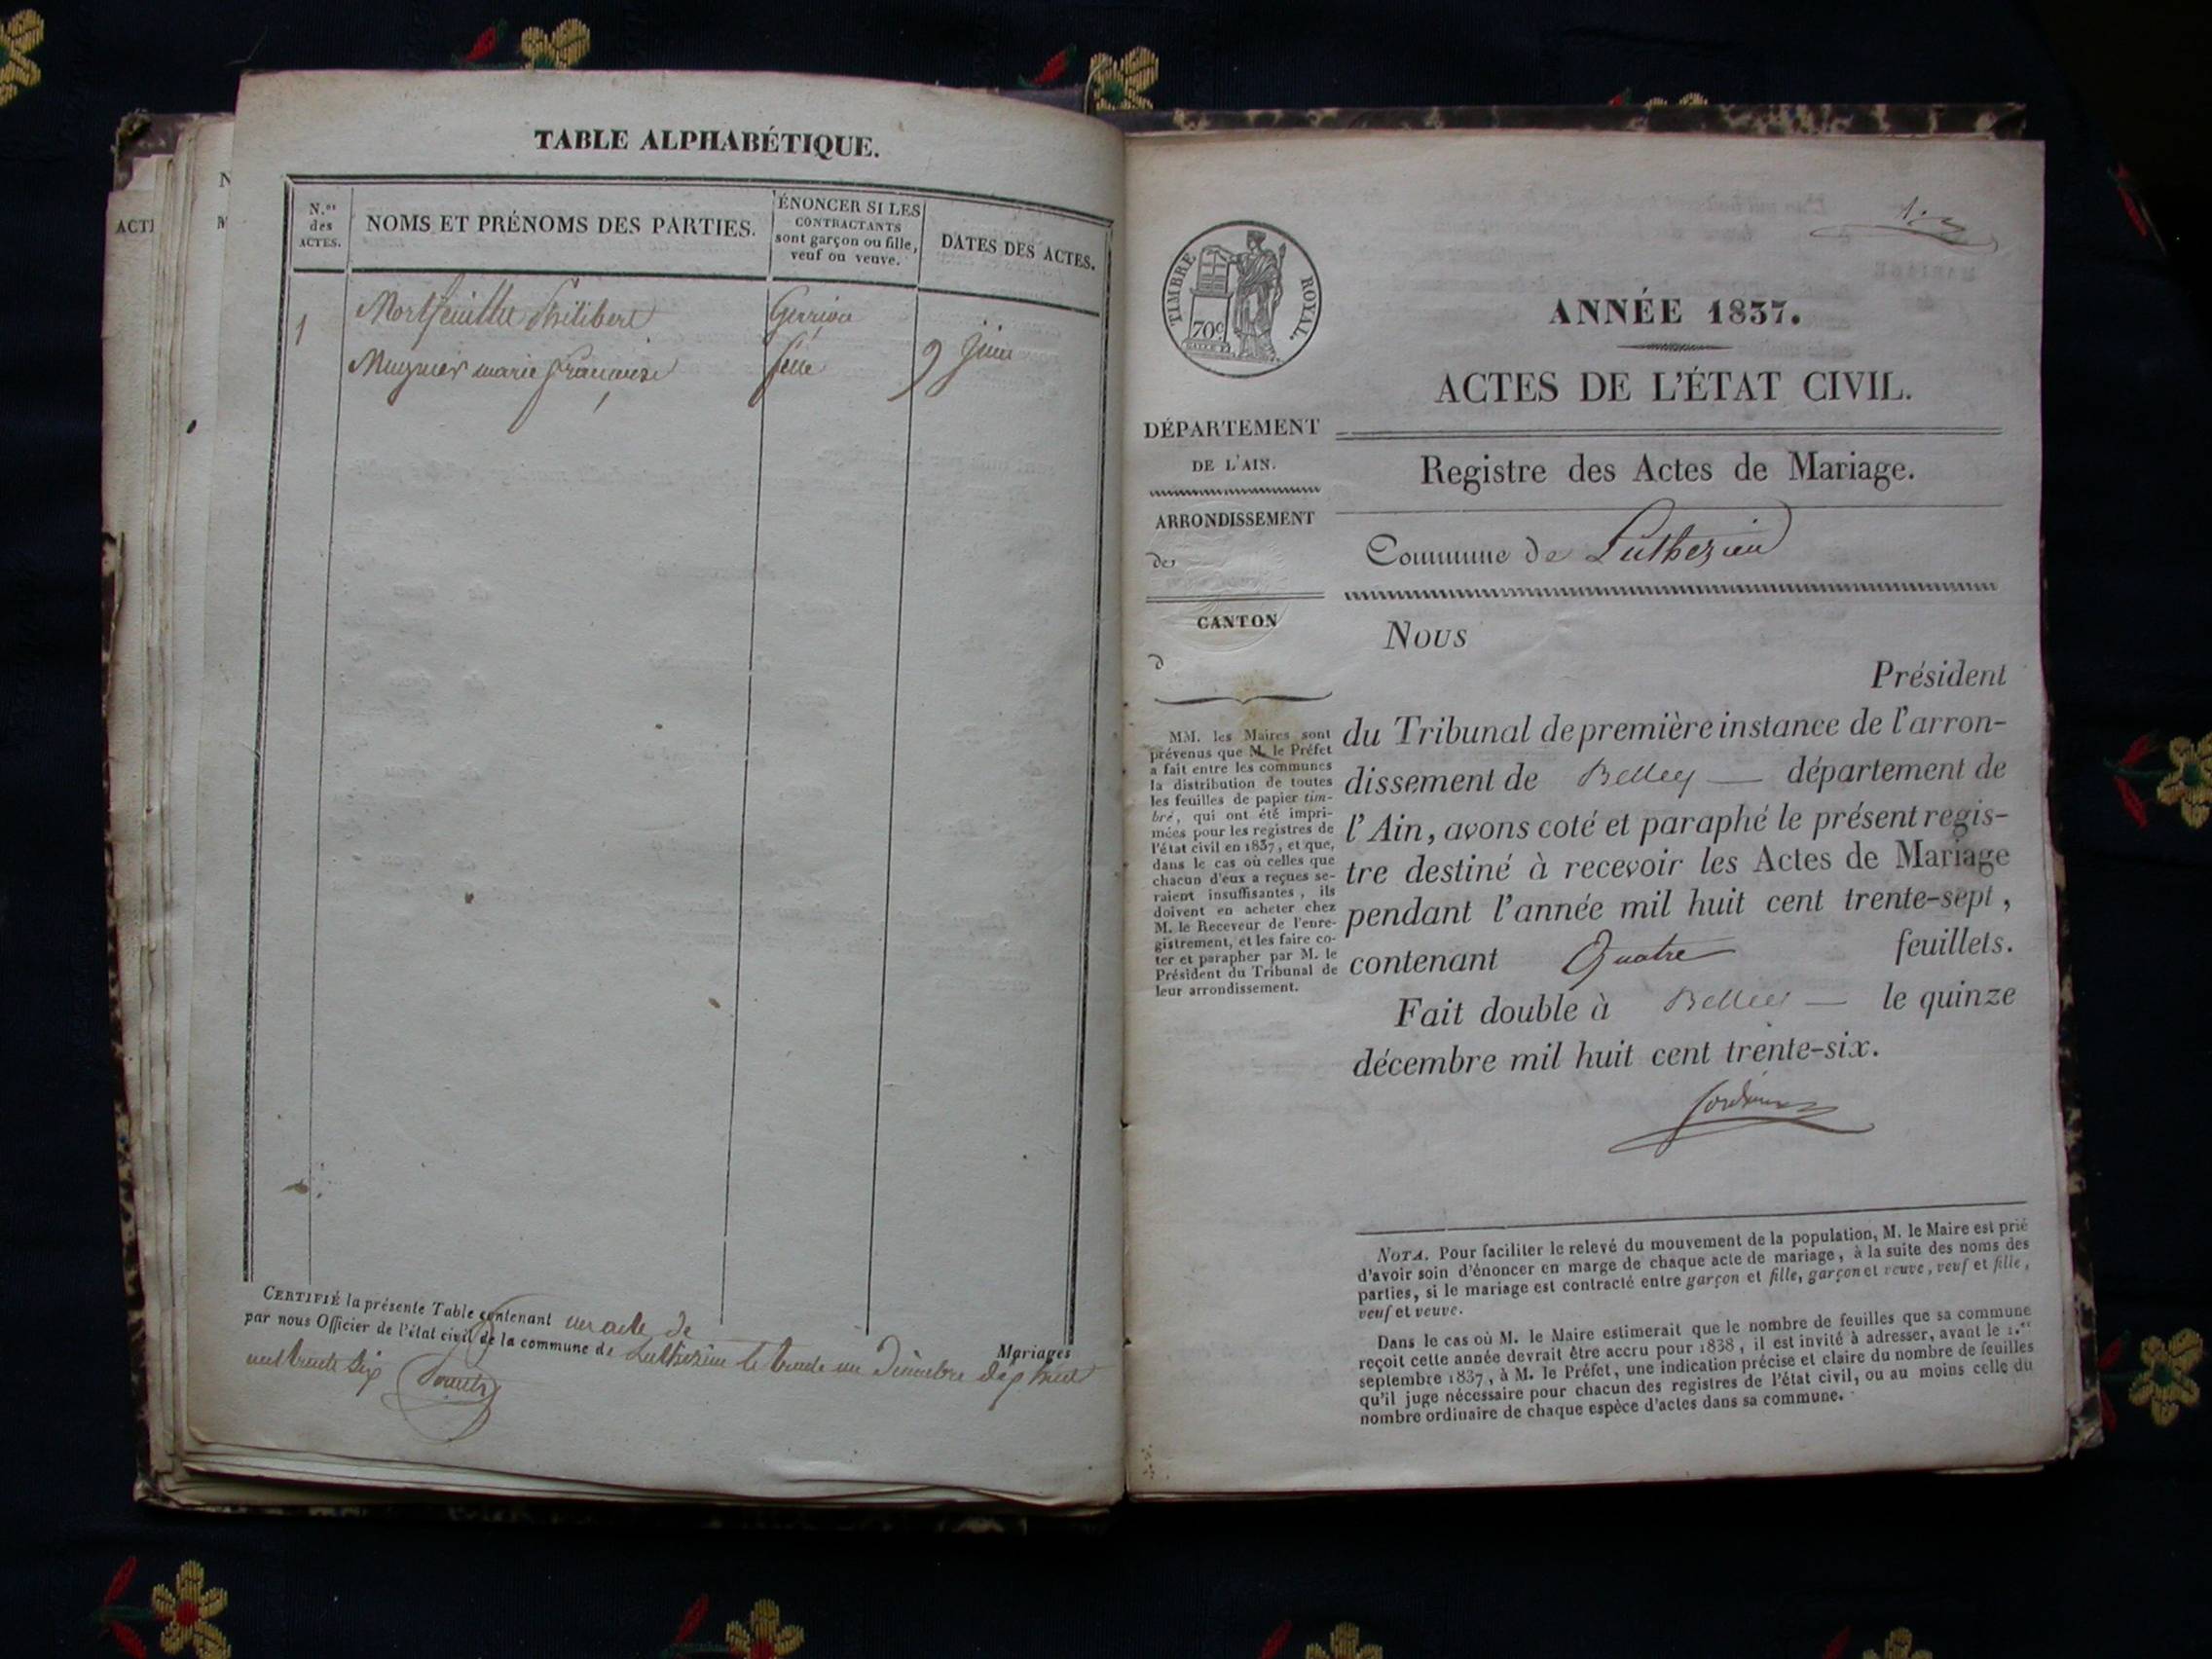 ACTI
N
M
TABLE ALPHABÉTIQUE.
N.os des ACTES.
NOMS ET PRÉNOMS DES PARTIES.
ÉNONCER SI LES
CONTRACTANTS
sont garçon ou fille,
veuf ou veuve.
DATES DES ACTES.
1
Mortfeuillu Philibert
Garçon
Mugnier marie françoise
fille
9 Juin
CERTIFIÉ la présente Table contenant un acte de Mariages
par nous Officier de l'état civil de la commune de Luthezieu le trente un Décembre huit
cent trente Six
TIMBRE ROYAL.
70c
1.er
ANNÉE 1837.
ACTES DE L'ÉTAT CIVIL.
DÉPARTEMENT
DE L'AIN.
ARRONDISSEMENT
de
CANTON
d
Registre des Actes de Mariage.
Commune de Luthezieu
MM. les Maires sont
prévenus que M. le Préfet
a fait entre les communes
la distribution de toutes
les feuilles de papier tim-
bré, qui ont été impri-
mées pour les registres de
l'état civil en 1837, et que,
dans le cas où celles que
chacun d'eux a reçues se-
raient insuffisantes, ils
doivent en acheter chez
M. le Receveur de l'enre-
gistrement, et les faire co-
ter et parapher par M. le
Président du Tribunal de
leur arrondissement.
Nous
Président
du Tribunal de première instance de l'arron-
dissement de Belley — département de
l'Ain, avons coté et paraphé le présent regis-
tre destiné à recevoir les Actes de Mariage
pendant l'année mil huit cent trente-sept,
contenant Quatre feuillets.
Fait double à Belley — le quinze
décembre mil huit cent trente-six.
NOTA. Pour faciliter le relevé du mouvement de la population, M. le Maire est prié
d'avoir soin d'énoncer en marge de chaque acte de mariage, à la suite des noms des
parties, si le mariage est contracté entre garçon et fille, garçon et veuve, veuf et fille,
veuf et veuve.
Dans le cas où M. le Maire estimerait que le nombre de feuilles que sa commune
reçoit cette année devrait être accru pour 1838, il est invité à adresser, avant le 1.er
septembre 1837, à M. le Préfet, une indication précise et claire du nombre de feuilles
qu'il juge nécessaire pour chacun des registres de l'état civil, ou au moins celle du
nombre ordinaire de chaque espèce d'actes dans sa commune.